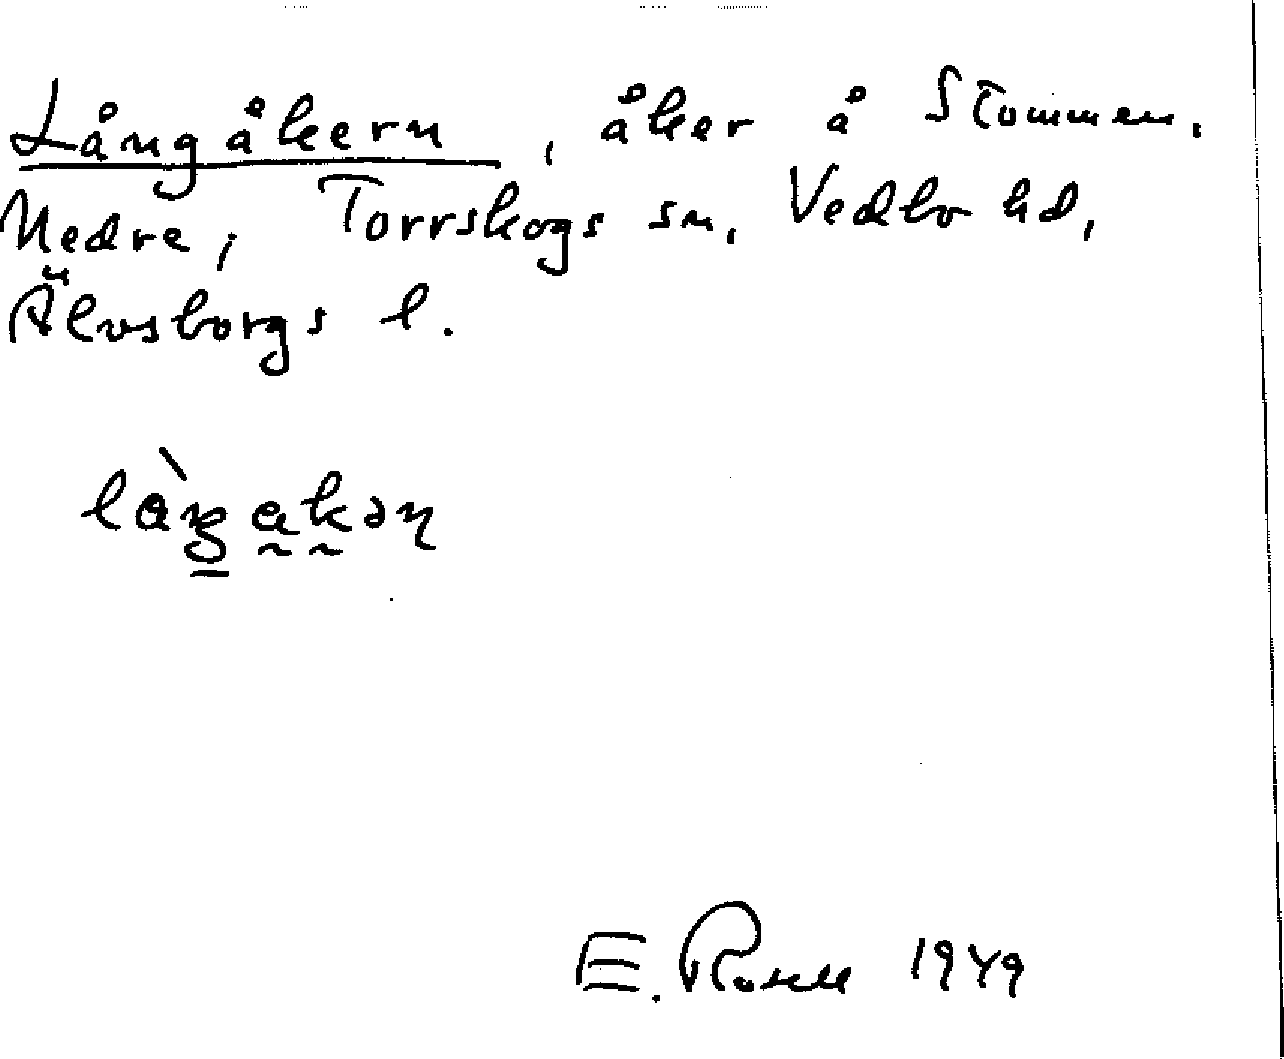 Långåkern, åker å Stommen,
Nedre, Torrskogs sn, Vedbo hd,
Älvsborgs l.
E. Rosell 1949